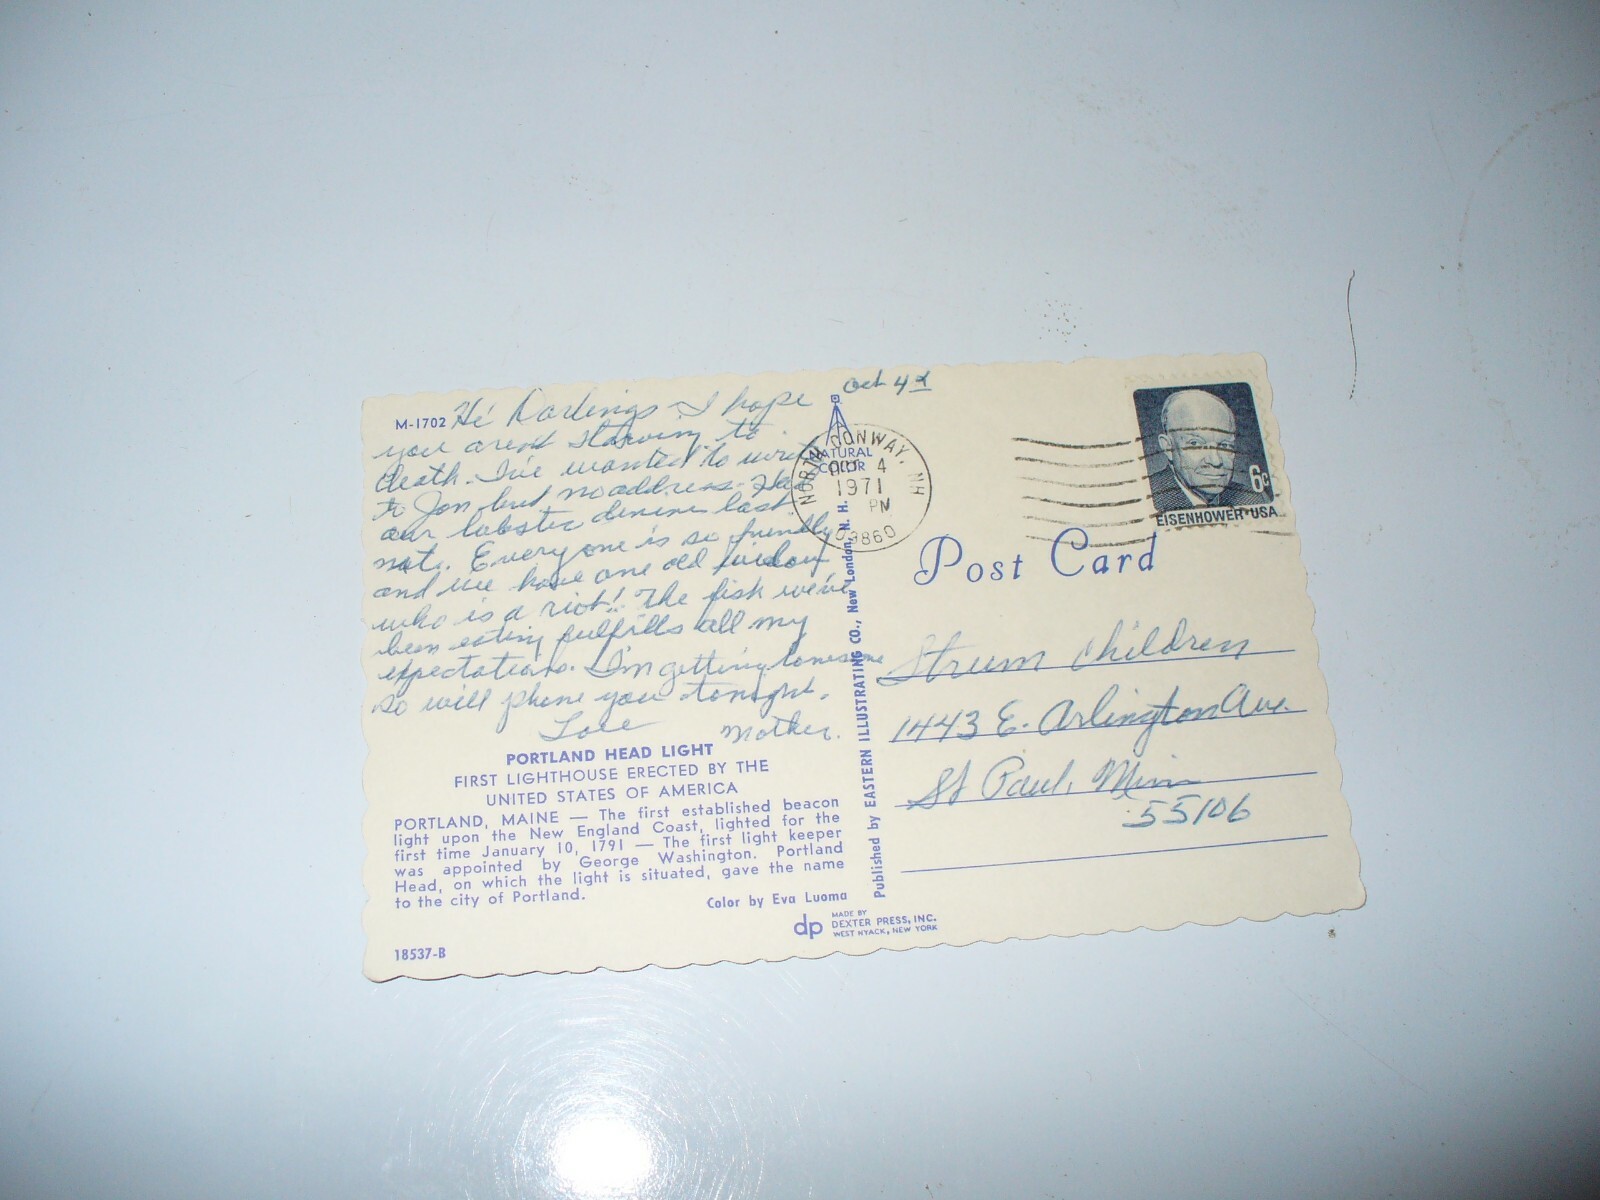 M-1702 Hi Darlings - I hope
you arent starving to
death. I've wanted to write
to Jon but no address. Had
our lobster dinine last
nat. Everyone is so friendly
and we have one old widow
who is a riot! The fish we've
been eating fulfills all my
expectations. I'm getting lonesome
so will phone you tonight.
Love Mother.
PORTLAND HEAD LIGHT
FIRST LIGHTHOUSE ERECTED BY THE
UNITED STATES OF AMERICA
PORTLAND, MAINE — The first established beacon
light upon the New England Coast, lighted for the
first time January 10, 1791 — The first light keeper
was appointed by George Washington. Portland
Head, on which the light is situated, gave the name
to the city of Portland.
Color by Eva Luoma
18537-B
dp MADE BY
DEXTER PRESS, INC.
WEST NYACK, NEW YORK
Published by EASTERN ILLUSTRATING CO., New London, N. H.
NATURAL
COLOR
Oct 4
NORTH CONWAY, NH
4
1971
PM
03860
6c
EISENHOWER·USA
Post Card
Strum Children
1443 E. Arlington Ave.
St Paul, Minn
55106